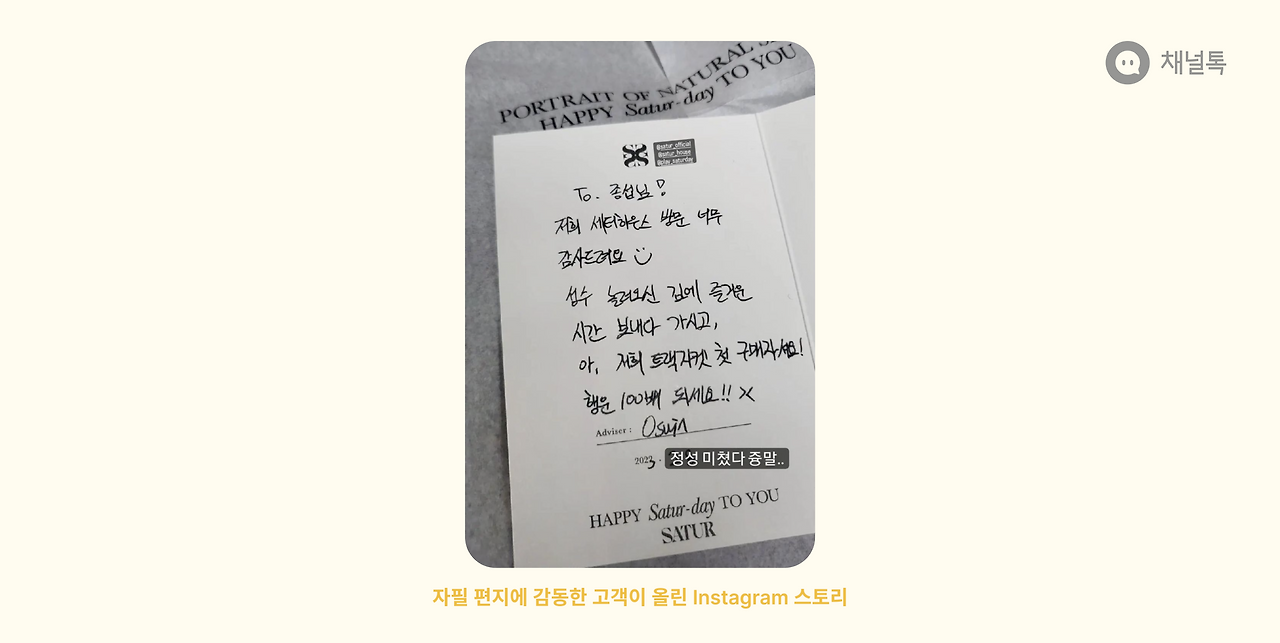 채널톡
PORTRAIT OF NATURAL
HAPPY Satur-day TO YOU
@satur_official
@satur_house
@play_saturday
To. 종섭님!
저희 세터하우스 방문 너무
감사드려요
성수 놀러오신 김에 즐거운
시간 보내다 가시고,
아, 저희 트랙자켓 첫 구매자세요!
행운 100배 되세요!!
Adviser : Osujin
2023.
정성 미쳤다 증말..
HAPPY Satur-day TO YOU
SATUR
자필 편지에 감동한 고객이 올린 Instagram 스토리